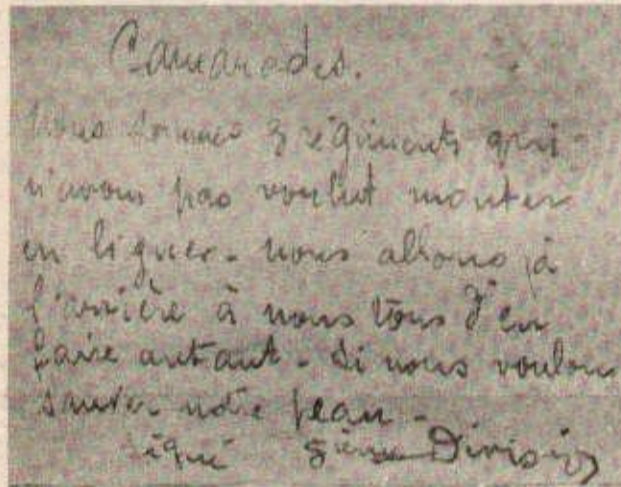 Camarades.
Nous sommes 3 régiments qui
n'avons pas voulut monter
en lignes. nous allons à
l'arrière à nous tous d'en
faire autant. si nous voulons
sauver notre peau.
signé 5ième Division